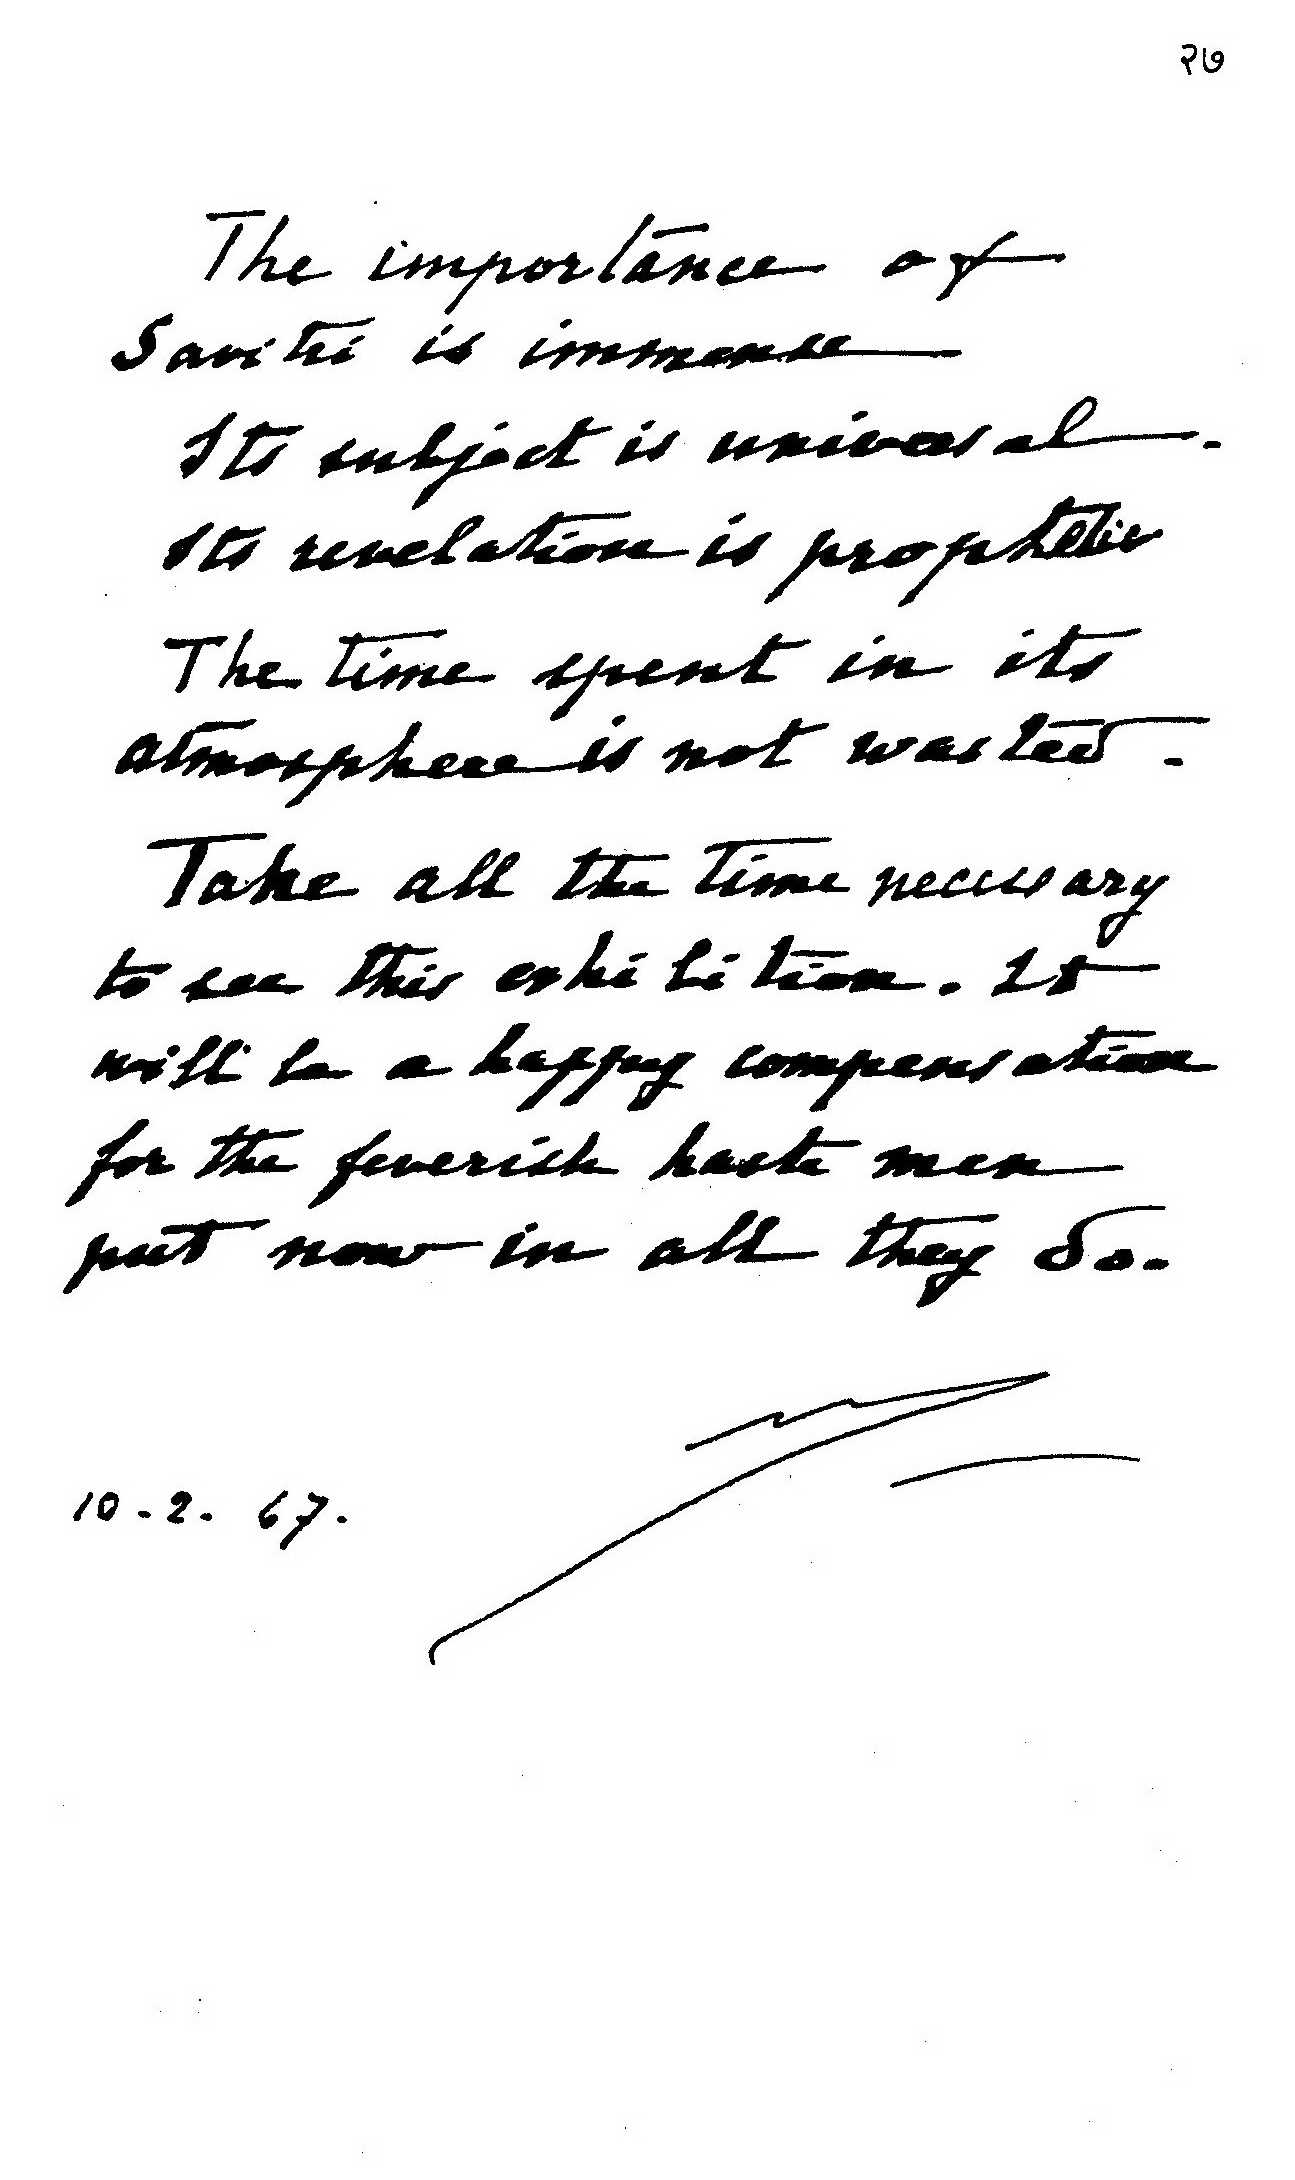 २७
The importance of
Savitri is immense
Its subject is universal.
Its revelation is prophetic
The time spent in its
atmosphere is not wasted.
Take all the time necessary
to see this exhibition. It
will be a happy compensation
for the feverish haste men
put now in all they do.
10-2.67.